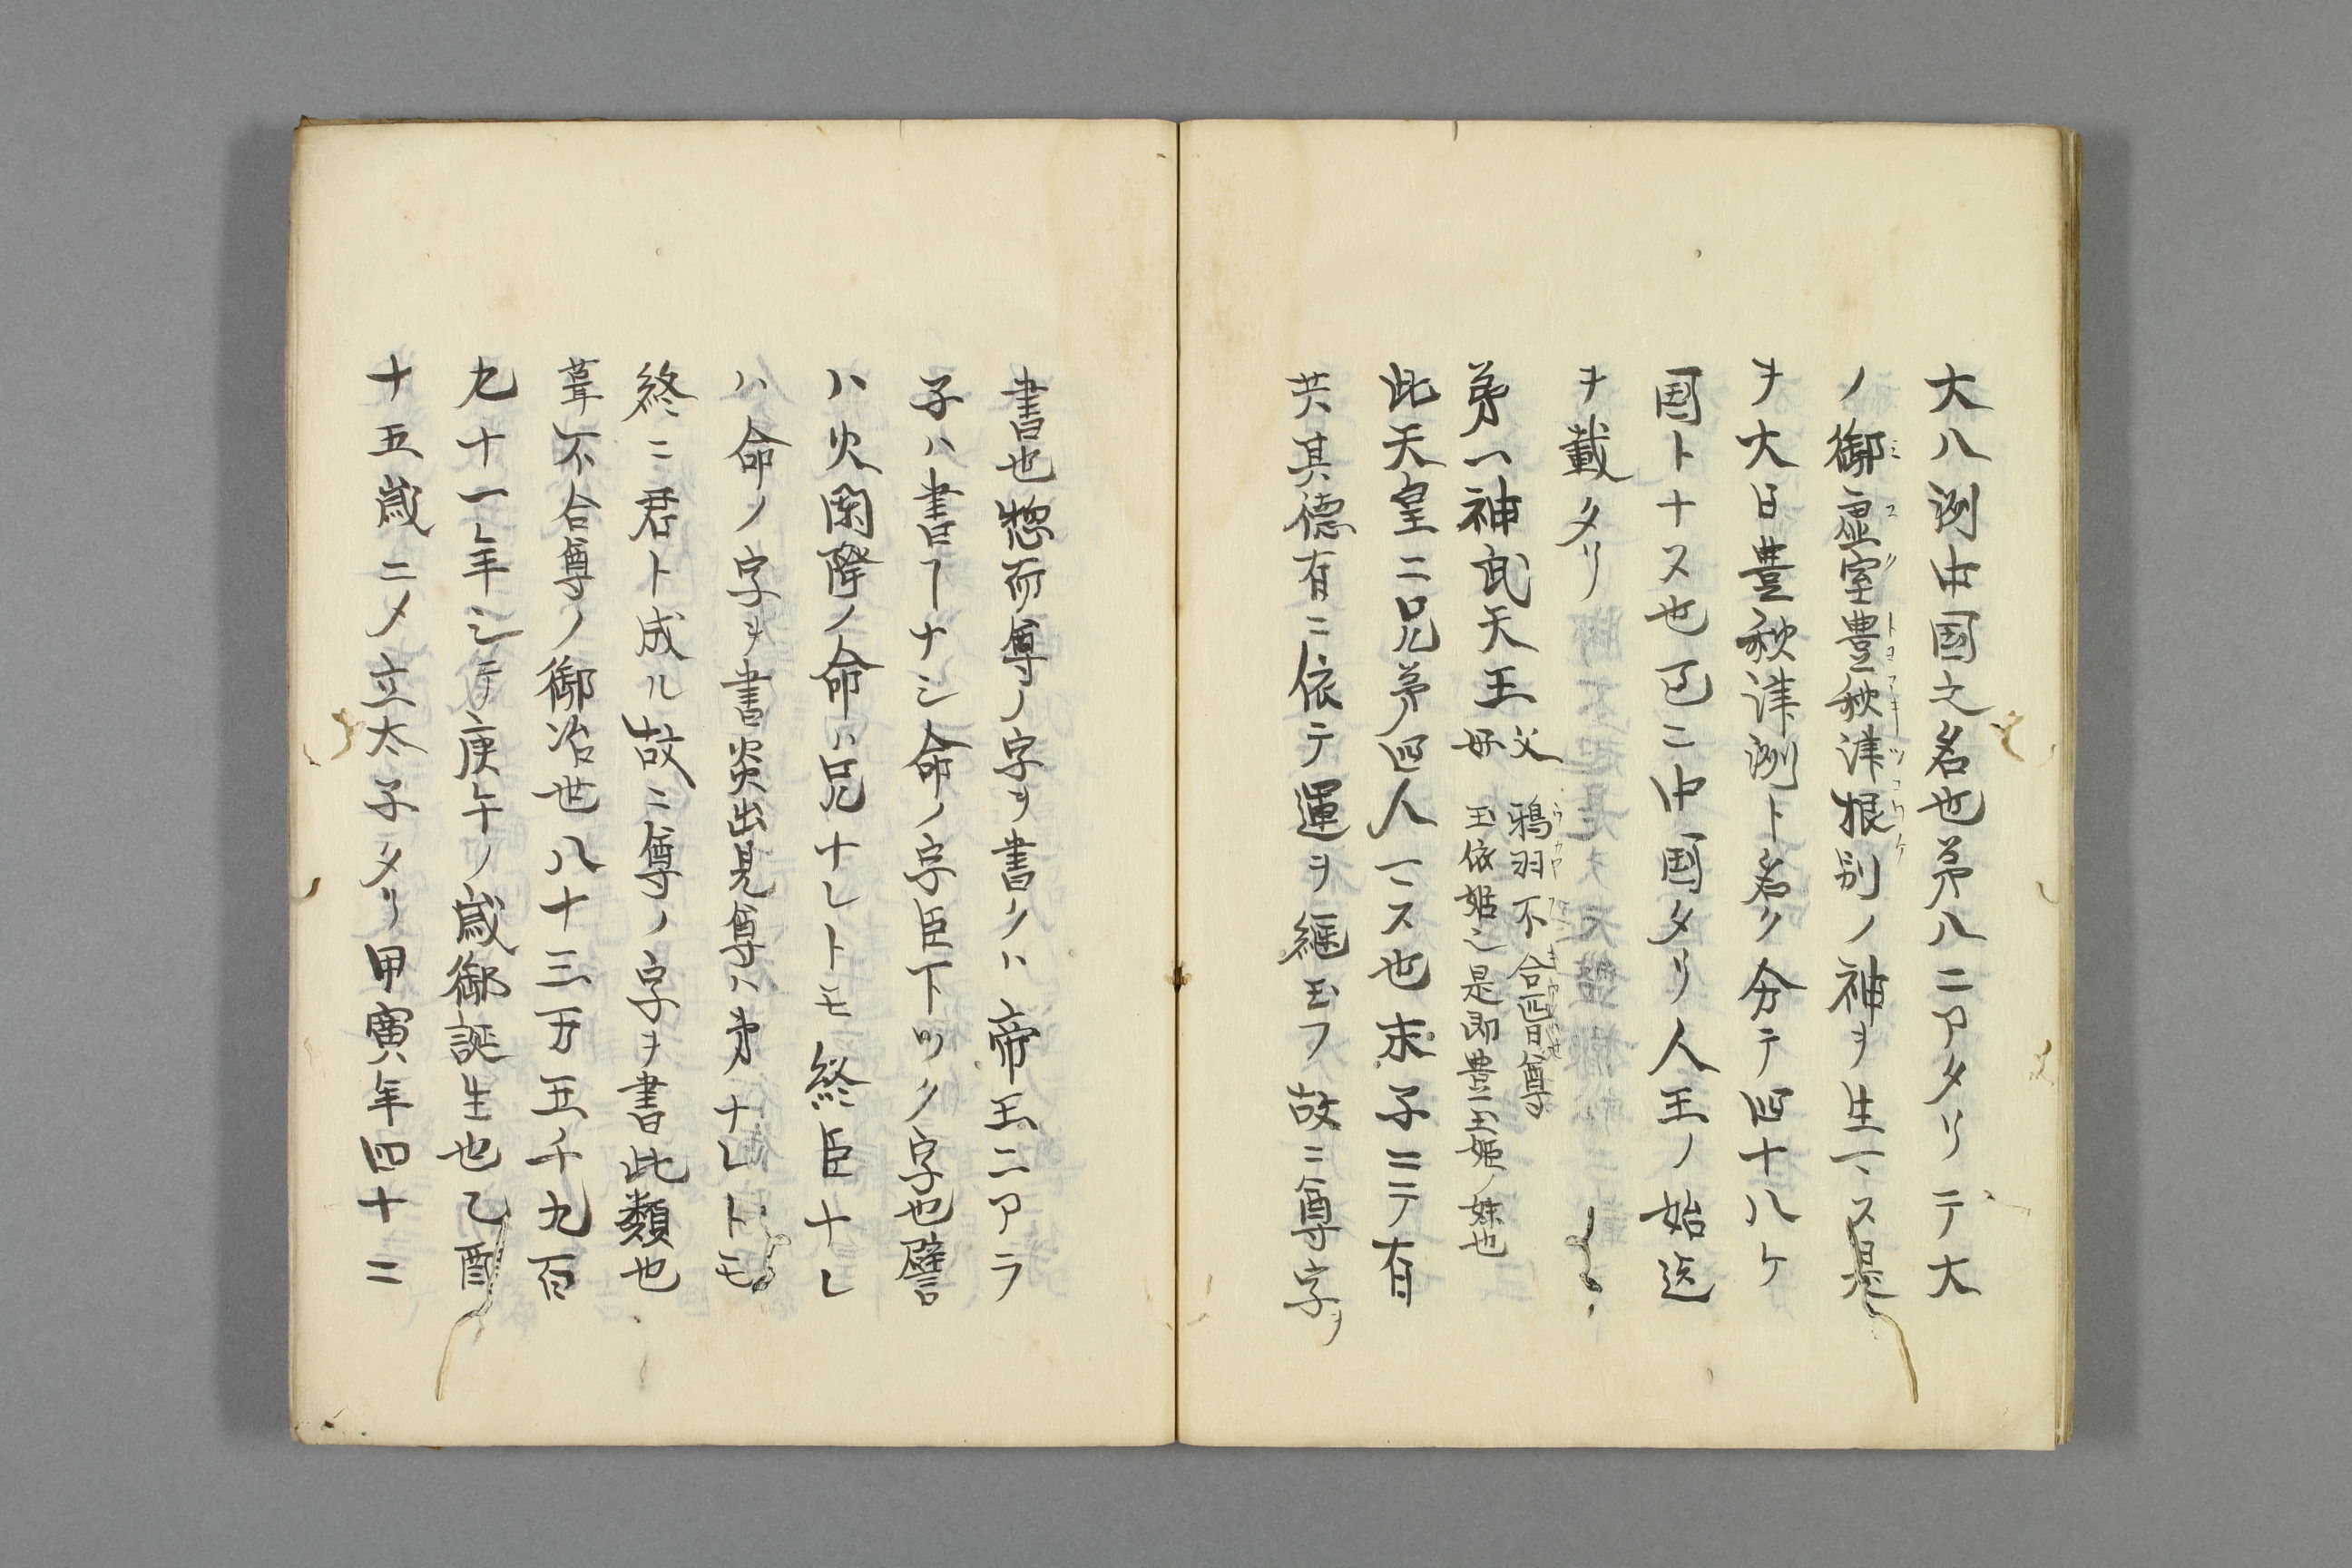 大八洲中国之名也第八ニアタリテ大
ノ御虚空豊秋津根別ノ神ヲ生マス
ヲ大日豊秋津洲ト名ク分テ四十八ケ
国トナス也已ニ中国タリ人王ノ始迄
ヲ載タリ
第一神武天王 父 鵜羽不合尊
母 玉依姫ハ是即豊玉姫ノ妹也
此天皇ニ兄弟四人マス也末子ニテ有
共其徳有ニ依テ運ヲ継玉フ故ニ尊字ヲ
書也惣而尊ノ字ヲ書クハ帝王ニアラ
子ハ書コトナシ命ノ字臣下ツク字也譬
ハ火闌降ノ命ハ兄ナレトモ終臣ナレ
ハ命ノ字ヲ書炎出見尊ハ弟ナレトモ
終ニ君ト成ル故ニ尊ノ字ヲ書此類也
葺不合尊ノ御治世八十三万五千九百
九十一年シテ庚午ノ歳御誕生也乙酉
十五歳ニメ立太子タリ甲寅年四十二